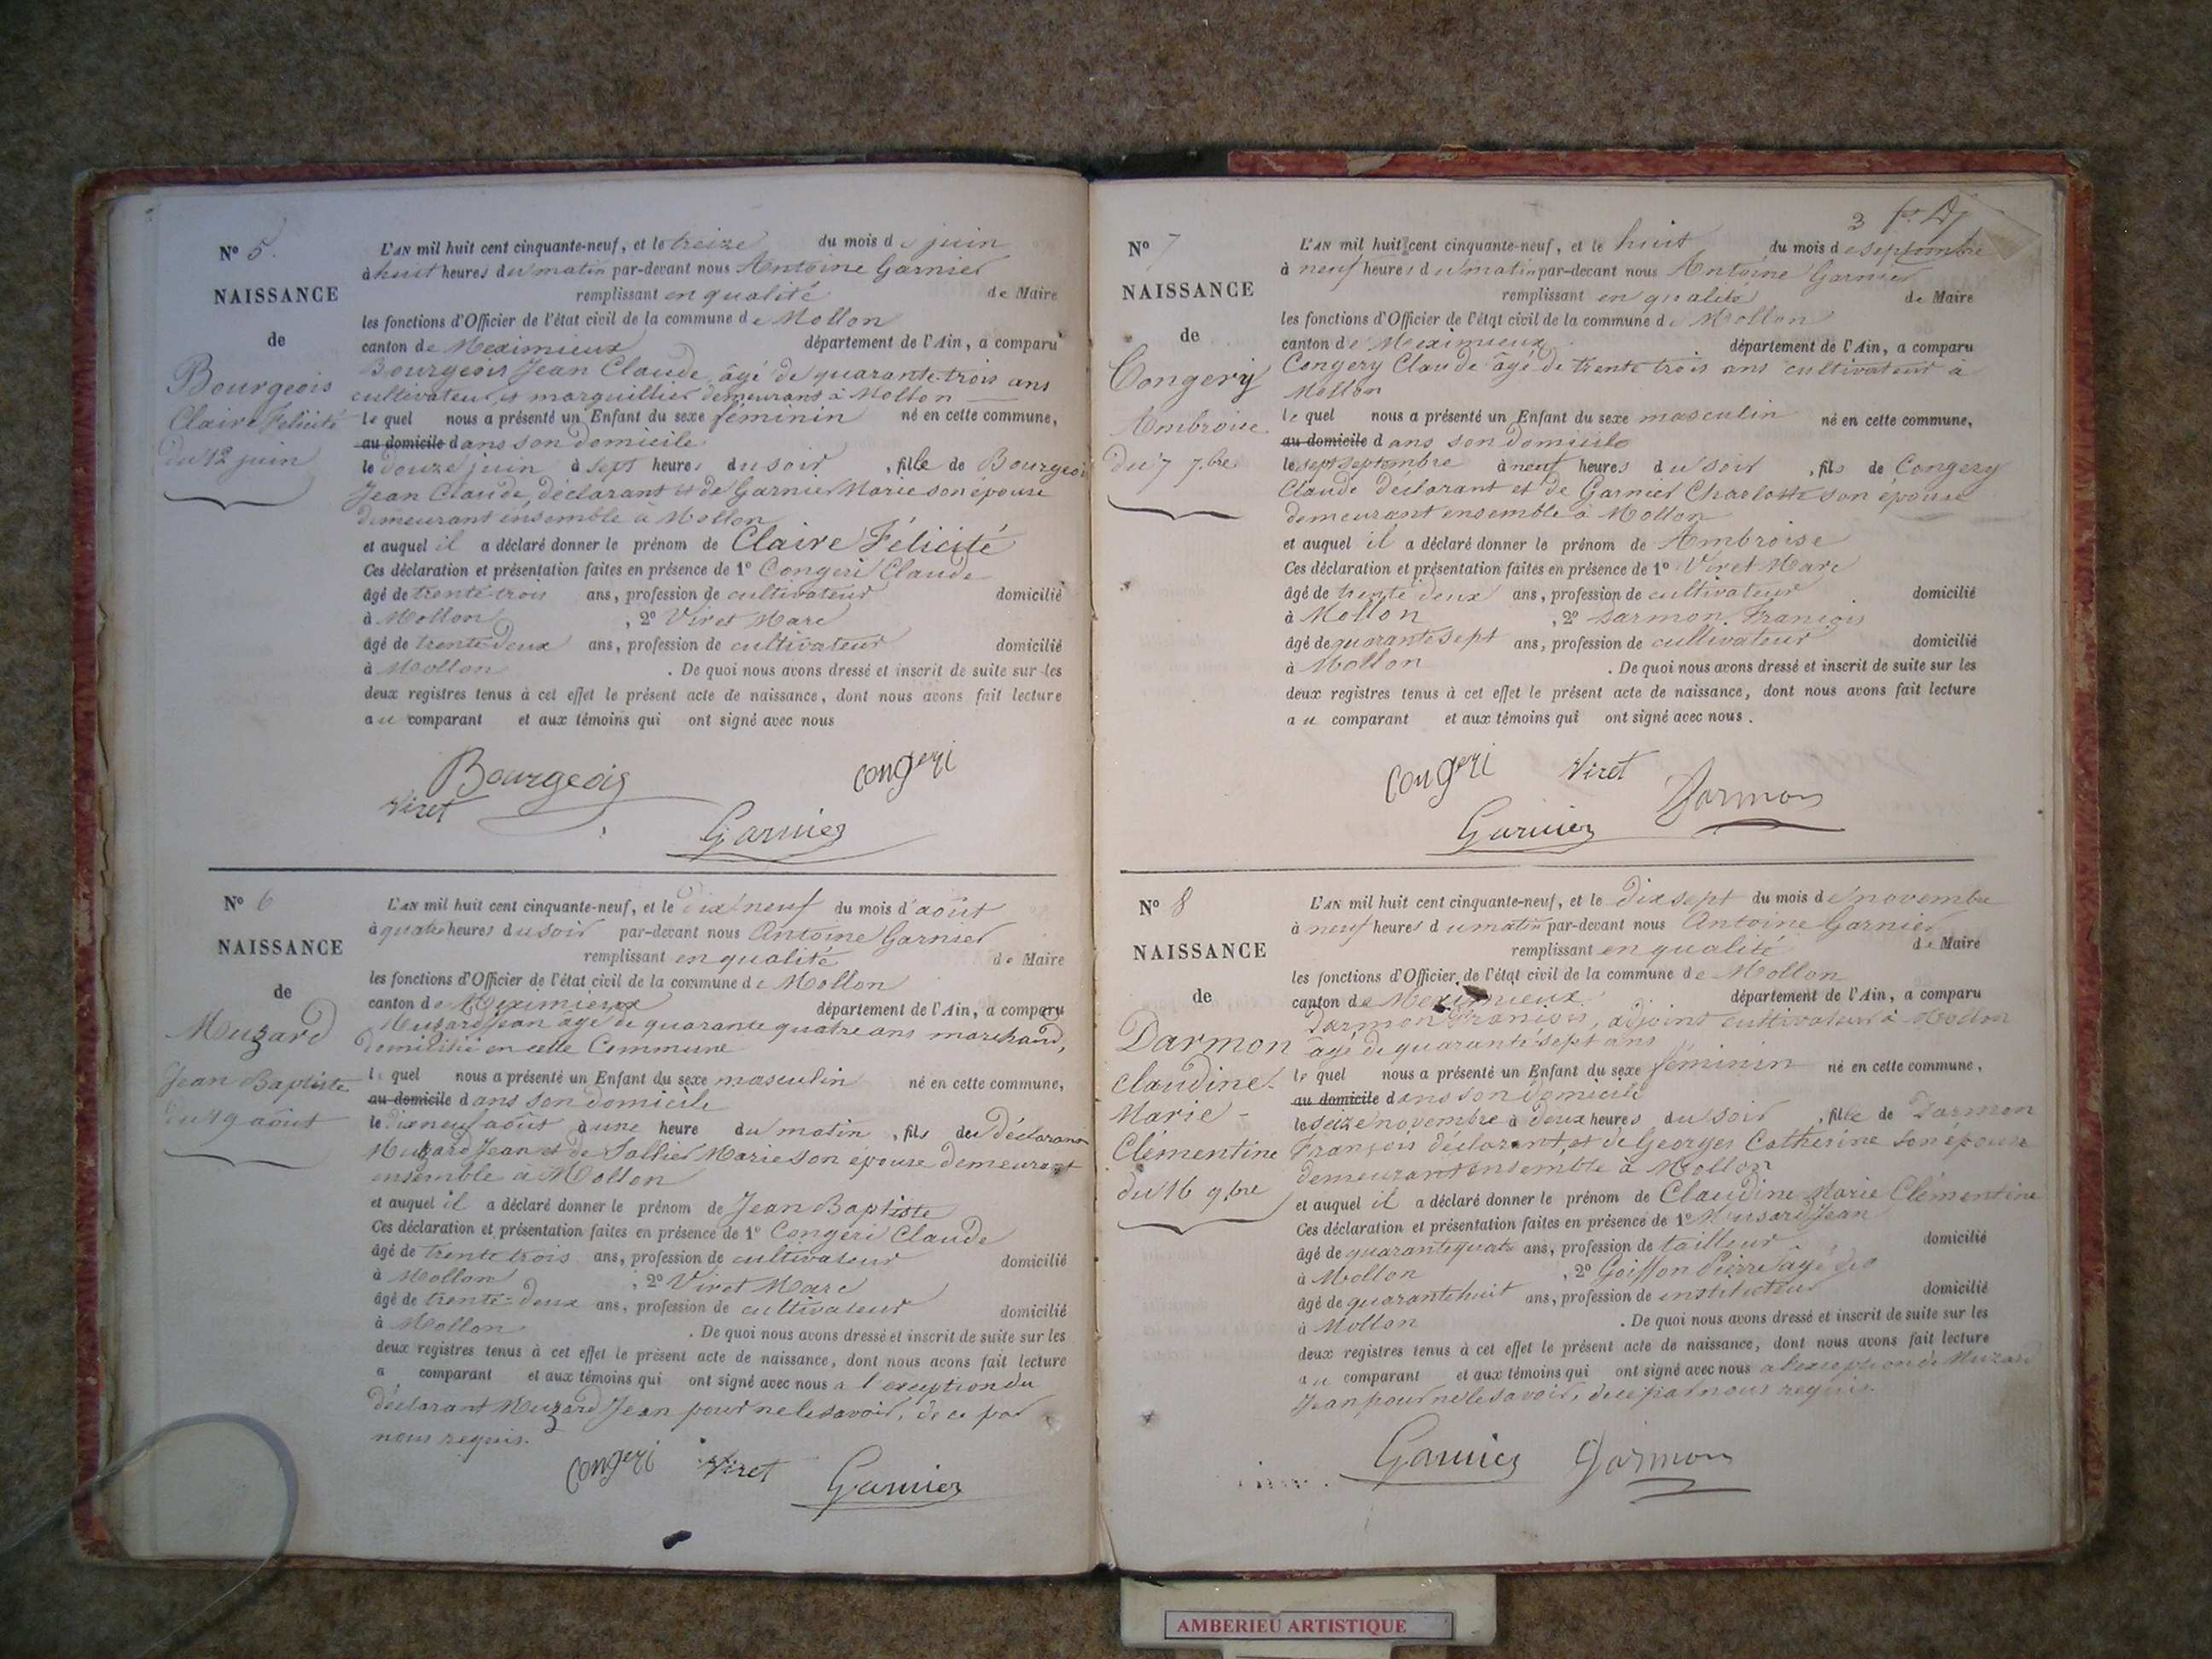 N° 5.
NAISSANCE
de
Bourgeois
Claire Félicité
du 12 juin
L'AN mil huit cent cinquante-neuf, et le treize du mois de juin
à huit heures du matin par-devant nous Antoine Garnier
remplissant en qualité de Maire
les fonctions d'Officier de l'état civil de la commune de Mollon
canton de Meximieux département de l'Ain, a comparu
Bourgeois Jean Claude âgé de quarante-trois ans
cultivateur et marguillier demeurant à Mollon
le quel nous a présenté un Enfant du sexe féminin né en cette commune,
au domicile dans son domicile
le douze juin à sept heures du soir, fille de Bourgeois
Jean Claude, déclarant et de Garnier Marie son épouse
demeurant ensemble à Mollon
et auquel il a déclaré donner le prénom de Claire Félicité
Ces déclaration et présentation faites en présence de 1° Congeri Claude
âgé de trente-trois ans, profession de cultivateur domicilié
à Mollon, 2° Viret Marc
âgé de trente deux ans, profession de cultivateur domicilié
à Mollon. De quoi nous avons dressé et inscrit de suite sur les
deux registres tenus à cet effet le présent acte de naissance, dont nous avons fait lecture
au comparant et aux témoins qui ont signé avec nous
Bourgeois congeri
Viret Garnier
N° 6
NAISSANCE
de
Muzard
Jean Baptiste
du 19 août
L'AN mil huit cent cinquante-neuf, et le dix neuf du mois d'août
à quatre heures du soir par-devant nous Antoine Garnier
remplissant en qualité de Maire
les fonctions d'Officier de l'état civil de la commune de Mollon
canton de Meximieux département de l'Ain, a comparu
Muzard Jean âgé de quarante quatre ans marchand,
domicilié en cette Commune
le quel nous a présenté un Enfant du sexe masculin né en cette commune,
au domicile dans son domicile
le dix neuf août à une heure du matin, fils de déclarant
Muzard Jean et de Sallier Marie son épouse demeurant
ensemble à Mollon
et auquel il a déclaré donner le prénom de Jean Baptiste
Ces déclaration et présentation faites en présence de 1° Congeri Claude
âgé de trente trois ans, profession de cultivateur domicilié
à Mollon, 2° Viret Marc
âgé de trente-deux ans, profession de cultivateur domicilié
à Mollon. De quoi nous avons dressé et inscrit de suite sur les
deux registres tenus à cet effet le présent acte de naissance, dont nous avons fait lecture
a comparant et aux témoins qui ont signé avec nous a l'exception du
déclarant Muzard Jean pour ne le savoir, de ce par
nous requis.
congeri Viret Garnier
3
N° 7
NAISSANCE
de
Congery
Ambroise
du 7 7.bre
L'AN mil huit cent cinquante-neuf, et le huit du mois de septembre
à neuf heures du matin par-devant nous Antoine Garnier
remplissant en qualité de Maire
les fonctions d'Officier de l'état civil de la commune de Mollon
canton de Meximieux département de l'Ain, a comparu
Congery Claude âgé de trente trois ans cultivateur à
Mollon
le quel nous a présenté un Enfant du sexe masculin né en cette commune,
au domicile dans son domicile
le sept septembre à neuf heures du soir, fils de Congery
Claude déclarant et de Garnier Charlotte son épouse
demeurant ensemble à Mollon
et auquel il a déclaré donner le prénom de Ambroise
Ces déclaration et présentation faites en présence de 1° Viret Marc
âgé de trente deux ans, profession de cultivateur domicilié
à Mollon, 2° Darmon François
âgé de quarante sept ans, profession de cultivateur domicilié
à Mollon. De quoi nous avons dressé et inscrit de suite sur les
deux registres tenus à cet effet le présent acte de naissance, dont nous avons fait lecture
au comparant et aux témoins qui ont signé avec nous.
congeri Viret Darmon
Garnier
N° 8
NAISSANCE
de
Darmon
Claudine-
Marie-
Clémentine
du 16 9.bre
L'AN mil huit cent cinquante-neuf, et le dix sept du mois de novembre
à neuf heures du matin par-devant nous Antoine Garnier
remplissant en qualité de Maire
les fonctions d'Officier de l'état civil de la commune de Mollon
canton de Meximieux département de l'Ain, a comparu
Darmon François, adjoint cultivateur à Mollon
âgé de quarante-sept ans
le quel nous a présenté un Enfant du sexe féminin né en cette commune,
au domicile dans son domicile
le seize novembre à deux heures du soir, fille de Darmon
François déclarant, et de Georges Catherine son épouse
demeurant ensemble à Mollon
et auquel il a déclaré donner le prénom de Claudine Marie Clémentine
Ces déclaration et présentation faites en présence de 1° Musard Jean
âgé de quarante quatre ans, profession de tailleur domicilié
à Mollon, 2° Goiffon Pierre âgé de
âgé de quarante huit ans, profession de instituteur domicilié
à Mollon. De quoi nous avons dressé et inscrit de suite sur les
deux registres tenus à cet effet le présent acte de naissance, dont nous avons fait lecture
au comparant et aux témoins qui ont signé avec nous a l'exception de Muzard
Jean pour ne le savoir, de ce par nous requis.
Garnier Darmon
AMBERIEU ARTISTIQUE